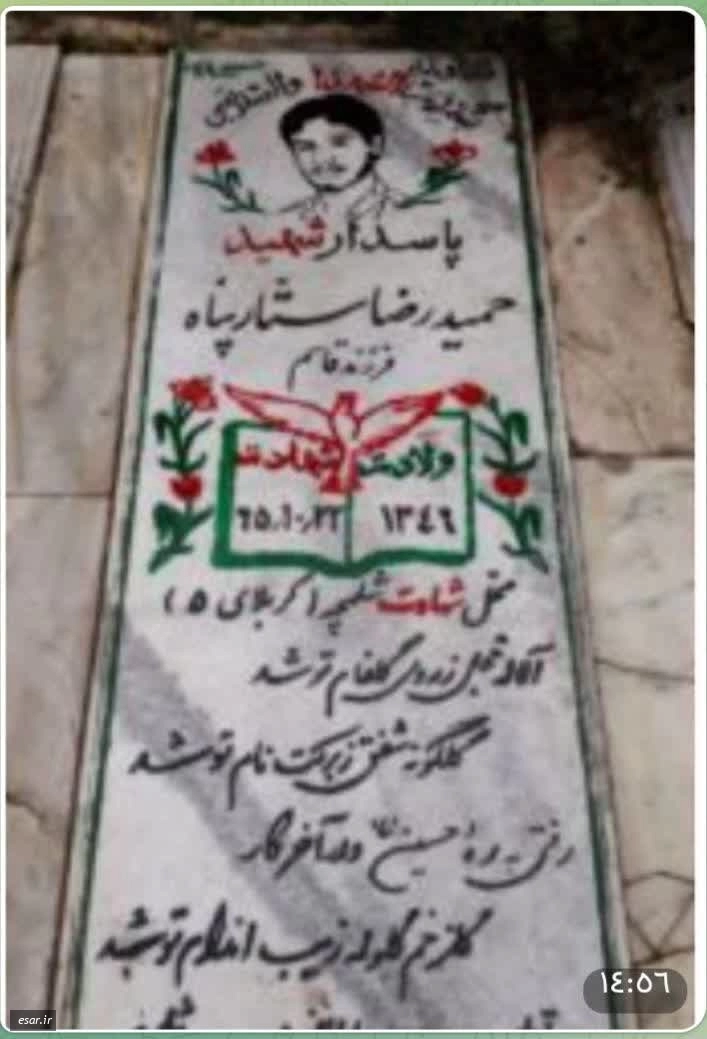 الشهدا والصدیقین
پاسدار شهید
حمیدرضا ستارپناه
فرزند قاسم
ولادت شهادت
۱۳۴۶ ۶۵،۱۰،۲۲
محل شهادت شلمچه (کربلای ۵)
زروی گلفام تو شد
گلگونه شفق ز برکت نام تو شد
رفتی به ره حسین و در آخر کار
گلزخم گلوله زیب اندام تو شد
١٤:٥٦
esar.ir